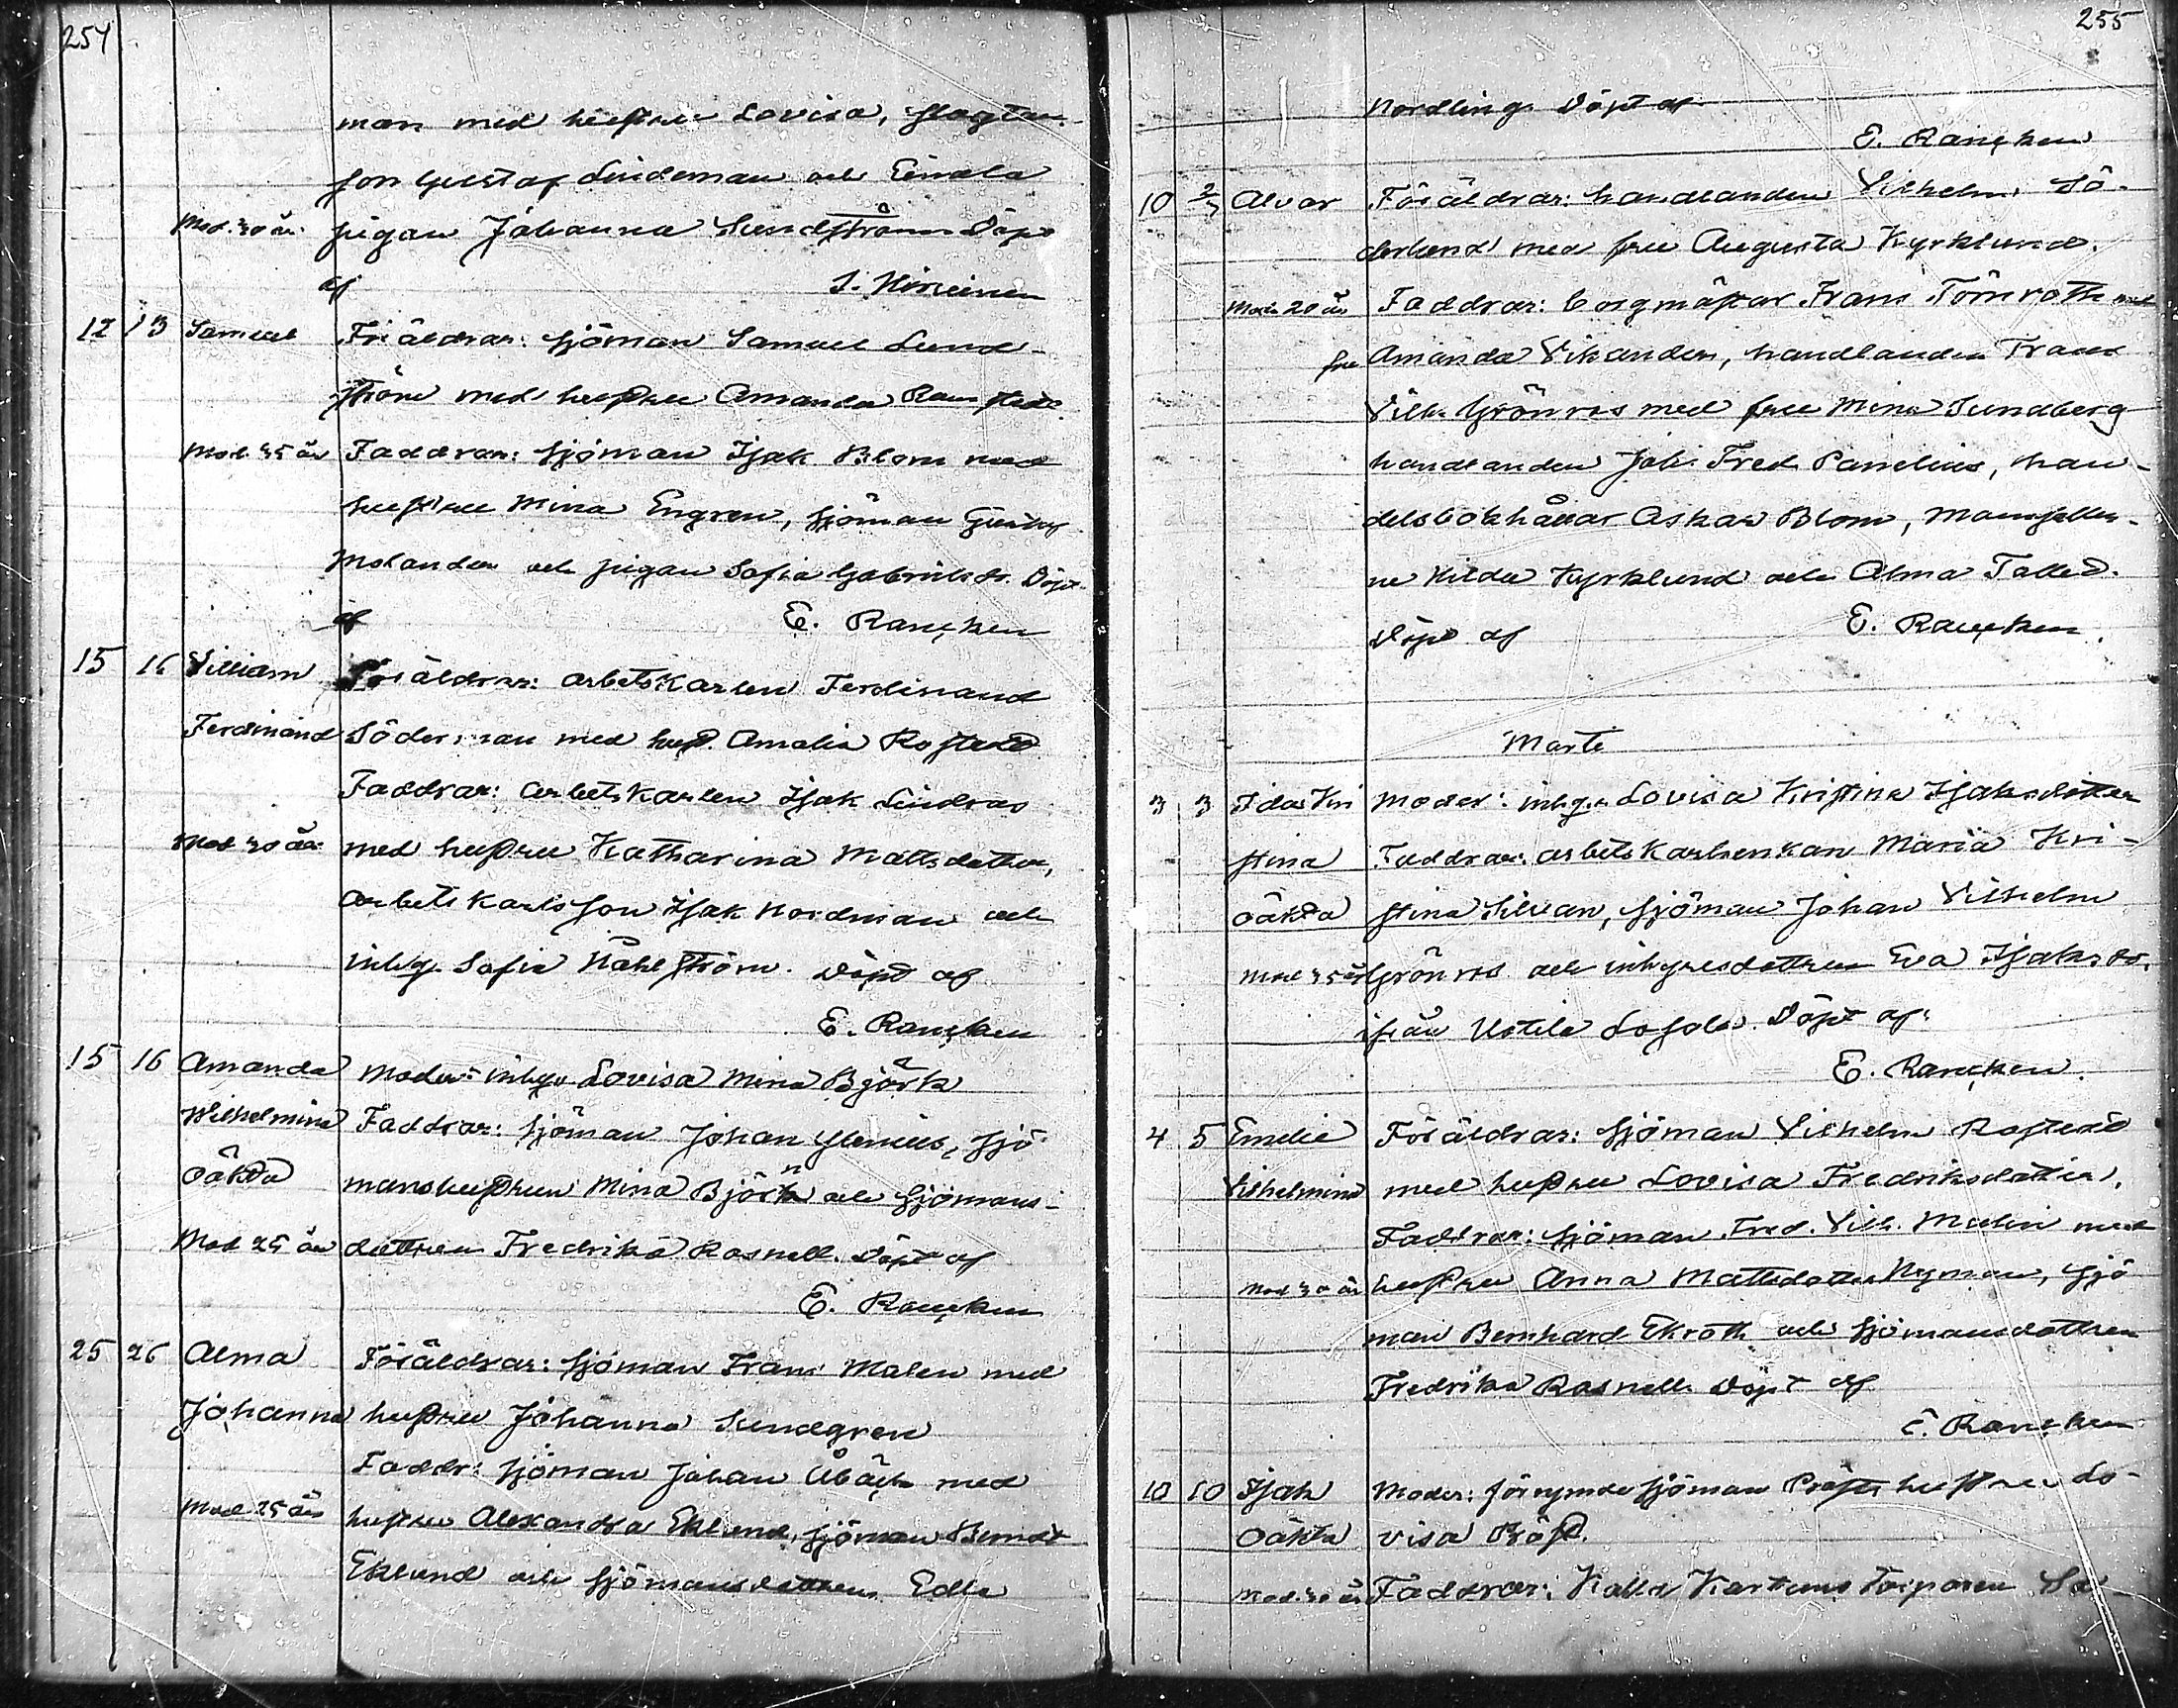 254
man med hustru Lovisa, slagtar-
son Gustaf Lindeman och
Mod. 30 år. pigan Johanna Sundström Döpt
af
12 13 Samuel Föräldrar: sjöman Samuel Lund-
ström med hustru Amanda Ramstedt
Mod. 35 år Faddrar: sjöman Isak Blom med
hustru Mina Engren, sjöman Gustaf
Molander och pigan Sofia Gabrielsdr. Döpt
af E. Rancken
15 16 Villiam Föräldrar: arbetskarlen Ferdinand
Ferdinand Söderman med hust. Amalia Rostedt
Faddrar: arbetskarlen Isak Lindroos
Mod 30 år med hustru Katharina Mattsdotter,
arbetskarlsson Isak Nordman och
inhys. Sofia Wahlström. Döpt af
E. Rancken
15 16 Amanda Moder: inhys. Lovisa Mina Björk
Wilhelmina Faddrar: sjöman Johan Glenius, sjö-
Oäkta manshustrun Mina Björn och sjömans-
Mod 25 år dottren Fredrika Rosnell. Döpt af
E. Rancken
25 26 Alma Föräldrar: sjöman Frans Malen med
Johanna hustru Johanna Sundgren
Faddr: sjöman Johan Åbäck med
Mod 25 år hustru Alexandra Eklund, sjöman Berndt
Eklund och sjömansdottren Edla
255
Nordling. Döpt af
E. Rancken
10 2/3 Alvar Föräldrar: handlanden Vilhelm Sö-
derlund med fru Augusta Kyrklund.
Mod 20 år Faddrar: borgmästar Frans Törnroth med
fru Amanda Vikander, handlanden Frans
Vilh. Grönroos med fru Mina Sundberg
handlanden Joh. Fred. Panelius, han-
delsbokhållar Oskar Blom, Mamseller-
ne Hilda Kyrklund och Alma Talled.
Döpt af E. Rancken.
Marti
3 3 Ida Kri Moder: inhys. Lovisa Kristina Isaksdotter
stina Faddrar: arbetskarlsenkan Maria Kri-
oäkta stina Silvan, sjöman Johan Vilhelm
Mod 35 år Grönroos och inhysesdottren Eva Isaksdr.
ifrån Ustila Döpt af:
E. Rancken.
4 5 Emelie Föräldrar: sjöman Vilhelm Rostedt
Vilhelmina med hustru Lovisa Fredriksdotter.
Faddrar: sjöman Fred. Vilh. Malin med
Mod 30 år hustru Anna Mattsdotter Nyman, sjö
man Bernhard Ekroth och sjömansdottren
Fredrika Rosnell. Döpt af
E. Rancken
10 10 Isak Moder: förrymde sjöman Prosts hustru Lo-
Oäkta visa Prost.
Mod. 30 år Faddrar: Kalle Toiponen